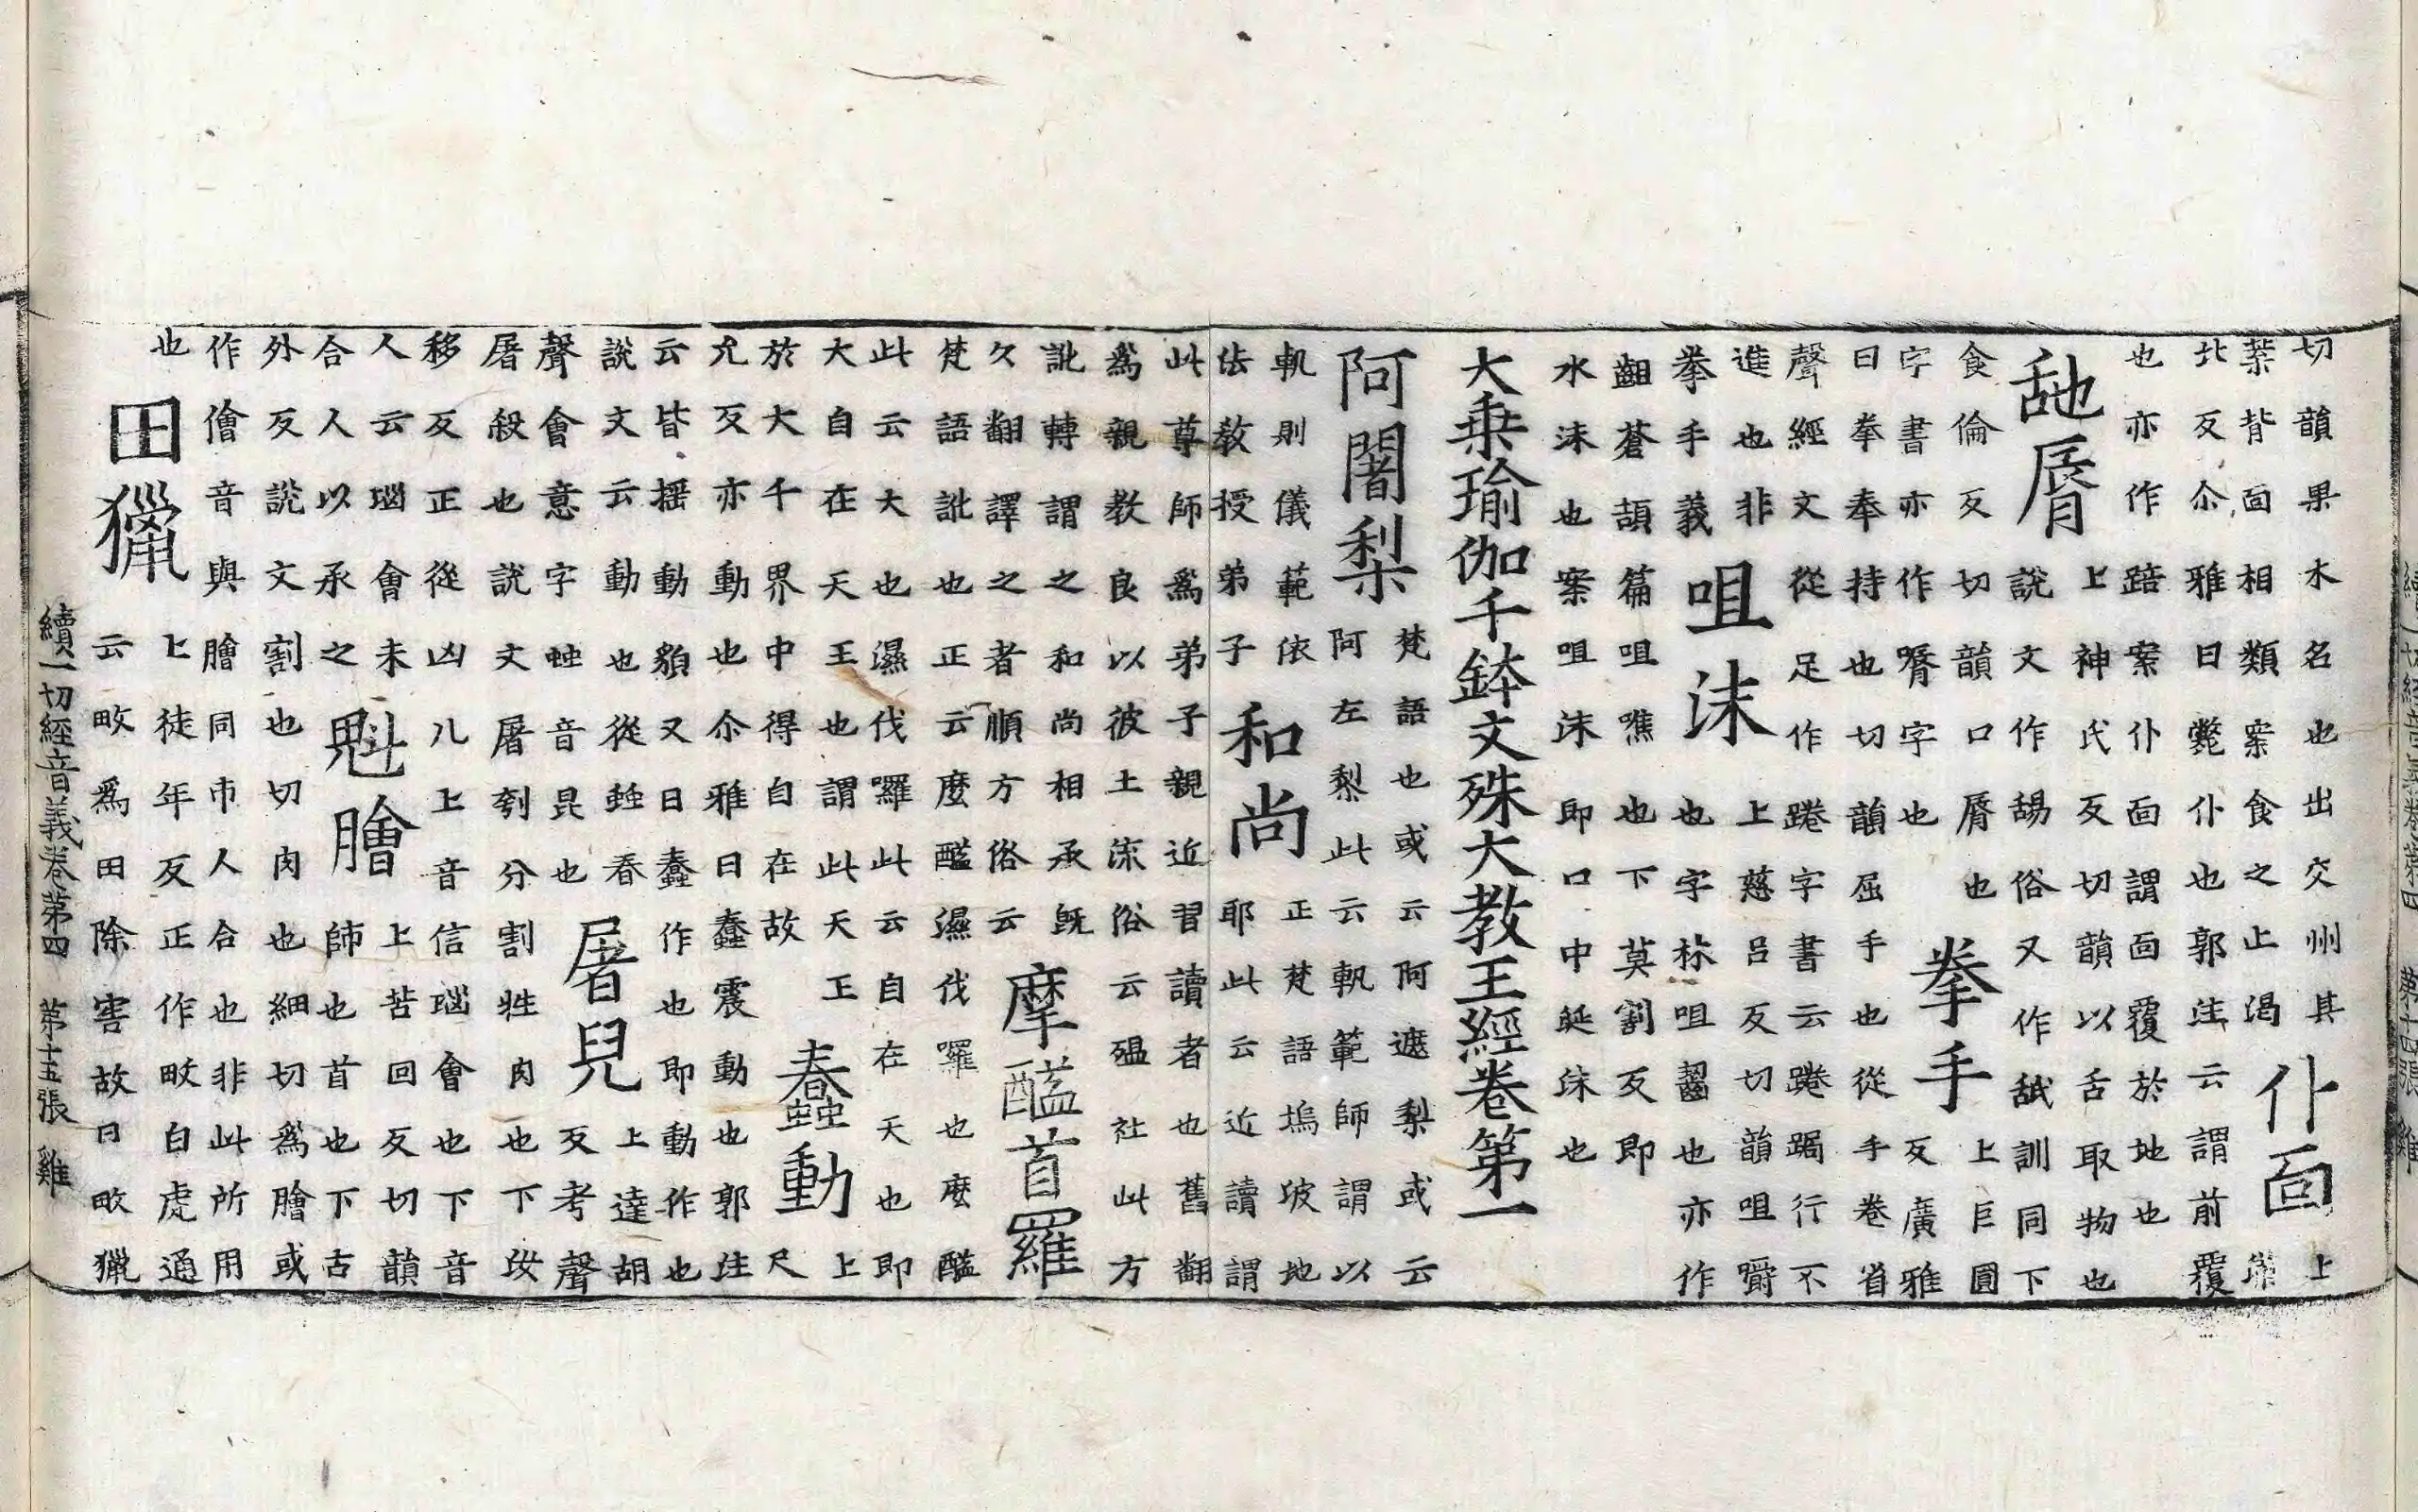 切韻果木名也出交州其
蘂背面相類案食之止渴
仆面
上
北反尒雅曰斃仆也郭注云謂前覆
也亦作踣案仆面謂面覆於地也
舓脣
上神氏反切韻以舌取物也
說文作舓俗又作舐訓同下
食倫反切韻口脣也
字書亦作㖘字也
拳手
上巨圓
反廣雅
曰拳奉持也切韻屈手也從手卷省
聲經文從足作踡字書云踡跼行不
進也非
拳手義
咀沫
上慈呂反切韻咀嚼
也字林咀齧也亦作
齟蒼頡篇咀噍也下莫割反即
水沫也案咀沫即口中涎沫也
大乗瑜伽千鉢文殊大教王經卷第一
阿闍梨
梵語也或云阿遮梨或云
阿左梨此云軌範師謂以
軌則儀範依
法教授弟子
和尚
正梵語塢坡地
耶此云近讀謂
此尊師爲弟子親近習讀者也舊翻
爲親教良以彼土流俗云殟社此方
訛轉謂之和尚相承旣
久翻譯之者順方俗云
摩醯首羅
梵語訛也正云麼醯濕伐囉也麼醯
此云大也濕伐囉此云自在天也即
大自在天王也謂此天王
於大千界中得自在故
蠢動
上
尺
允反亦動也尒雅曰蠢震動也郭注
云皆搖動皃又曰蠢作也即動作也
說文云動也從䖵春
聲會意字䖵音昆也
屠兒
上達胡
反考聲
屠殺也說文屠刳分割牲肉也下汝
移反正從凶儿上音信𡿺會也下音
人云𡿺會未
合人以承之
魁膾
上苦回反切韻
師也首也下古
外反說文割也切肉也細切爲膾或
作儈音與膾同市人合也非此所用
也
田獵
上徒年反正作畋白虎通
云畋爲田除害故曰畋獵
續一切經音義卷第四 第十五張 雞